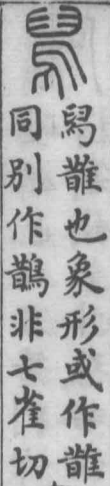 舄
舄䧿也象形或作䧿
同別作鵲非七雀切